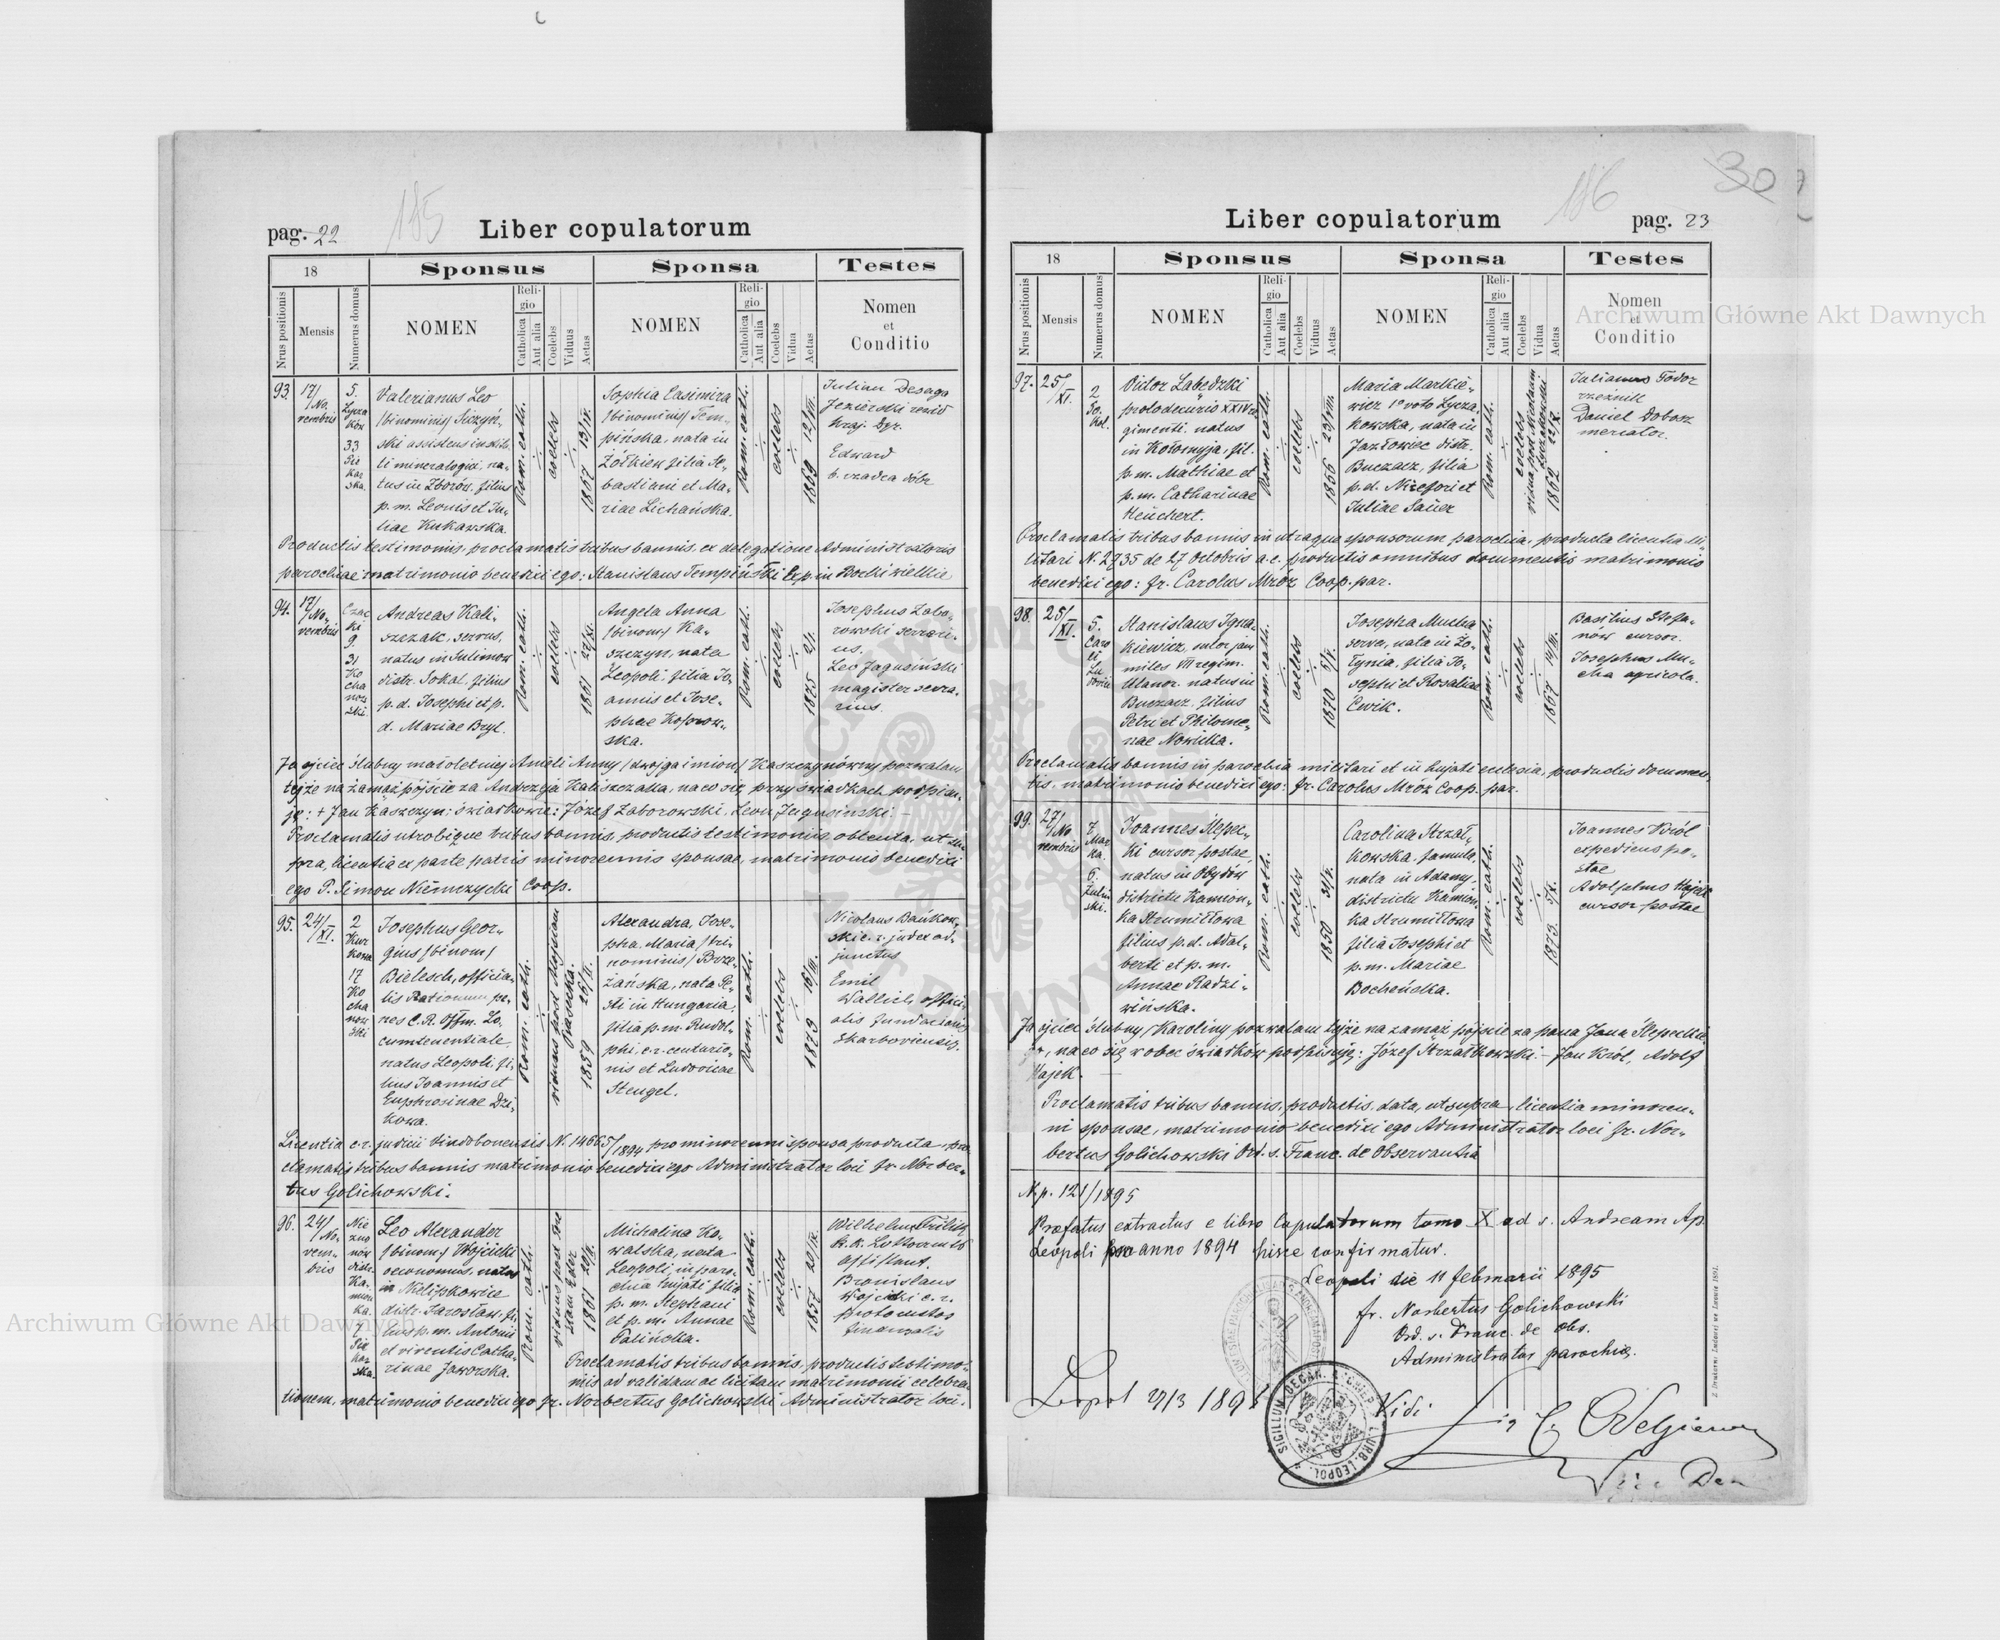 pag. 22
185
Liber copulatorum
18
Sponsus
Sponsa
Testes
Nrus positionis
Mensis
Numerus domus
NOMEN
Religio
Catholica
Aut alia
Coelebs
Viduus
Aetas
NOMEN
Religio
Catholica
Aut alia
Coelebs
Vidua
Aetas
Nomen
et
Conditio
93.
17/
No
vembris
5.
Łycza
kow
33
Pie
kar
ska.
Valerianus Leo
/binominis/ Siczyń-
ski assistens institu
ti mineralogici, na-
tus in Zborów. filius
p. m. Leonis et Ju-
liae Kukawska.
Rom. cath.
coelebs
1867 13/IV.
Sophia Casimira
/binominis/ Tem-
pińska, nata in
Żółkiew filia Se-
bastiani et Ma-
riae Lichańska.
Rom. cath.
coelebs
1869 12/III.
Julian Desaga
Jezierski
kraj. Dyr.
Edward
b. rządca dóbr
Productis testimoniis, proclamatis tribus bannis, ex delegatione Administratoris
parochiae matrimonio benedixi ego: Stanislaus Tempiński Exp. in Borki wielkie
94.
17/
No-
vembris
Czac
ki
9.
31
Ko
cha
now
ski.
Andreas Kali-
szczak, servus,
natus in Sulimow
distr. Sokal, filius
p. d. Josephi et p.
d. Mariae Bryl.
Rom. cath.
coelebs
1861 27/XI.
Angela Anna
/binom/ Ka-
szczyn, nata
Leopoli, filia Jo-
annis et Jose-
phae Koprow-
ska.
Rom. cath.
coelebs
1875 2/I.
Josephus Zabo-
rowski serrari-
us.
Leo Jagusinski
magister serra-
rius
Ja ojciec ślubny małoletniej Anieli Anny /dwojga imion/ Kaszczynówny pozwalam
tejże na zamążpójście za Andrzeja Kaliszczaka, na co się przy świadkach podpisu-
ję: + Jan Kaszczyn: świadkowie: Józef Zaborowski, Leon Jagusinski: -
Proclamatis utrobique tribus bannis, productis testimoniis, obtenta, ut su-
pra, licentia ex parte patris minorennis sponsae, matrimonio benedixi
ego P. Simon Niemczycki Coop.
95.
24/
XI.
2
Kur
kowa
17
Ko
cha
now
ski
Josephus Geor-
gius /binom/
Bielesch, officia-
lis Rationum pe-
nes C. R. Offm. Lo-
cumtenentiale,
natus Leopoli, fi-
lius Joannis et
Euphrosinae Dzi-
kowa.
Rom. cath.
1859 26/II.
Alexandra, Jose-
pha, Maria /tri-
nominis/ Brze-
żańska, nata Pe-
sti in Hungaria,
filia p. m. Rudol-
phi, c. r. centurio-
nis et Ludovicae
Stengel.
Rom. cath.
coelebs
1873 16/III.
Nicolaus Bańkow-
ski c. r. judex ad-
junctus
Emil
Wallich, offici-
alis fundationis
Skarboviensis.
Licentia c. r. judicii Vindobonensis N. 14665/1894 pro minorenni sponsa producta, pro
clamatis tribus bannis matrimonio benedixi ego Administrator loci fr. Norber-
tus Golichowski.
96.
24/
No-
vem-
bris
Leo Alexander
/binom/ Wojcicki
oeconomus, natus
in Nielipkowice
distr. Jarosław, fi-
lius p. m. Antonii
et viventis Catha-
rinae Jaworska.
Rom. cath.
1861 20/II.
Michalina Ko-
walska, nata
Leopoli, in paro-
chia hujati filia
p. m. Stephani
et p. m. Annae
Falińska.
Rom. cath.
coelebs
1857 20/IX.
Wilhelm
Assistent.
Bronislaus
Wojcicki c. r.
Proclamatis tribus bannis, productis testimo-
niis ad validam ac licitam matrimonii celebra-
tionem, matrimonio benedixi ego fr. Norbertus Golichowski Administrator loci.
Liber copulatorum
186
30
pag. 23
18
Sponsus
Sponsa
Testes
Nrus positionis
Mensis
Numerus domus
NOMEN
Religio
Catholica
Aut alia
Coelebs
Viduus
Aetas
NOMEN
Religio
Catholica
Aut alia
Coelebs
Vidua
Aetas
Nomen
et
Conditio
97.
25/
XI.
2
So-
kol.
Victor Łabędzki
protodecurio XXIV re
gimenti. natus
in Kołomyja, fil.
p. m. Mathiae et
p. m. Catharinae
Heuchert.
Rom. cath.
coelebs
1856 23/VII.
Maria Markie-
wicz 1º voto Łycza-
kowska, nata in
Jazłowiec distr.
Buczacz, filia
p. d. Nicefori et
Juliae Sauer
Rom. cath.
coelebs
vidua post Nicolaum
Łyczakowski
1862 22/X.
Julianus Fodor
rzeznik
Daniel Dobosz
mercator.
Proclamatis tribus bannis in utraque sponsorum parochia, producta licentia mi-
litari N. 2735 de 27 Octobris a. c. productis omnibus documentis matrimonio
benedixi ego: fr. Carolus Mróz Coop. par.
98.
25/
XI.
5.
Caro
li
Lu
dovici
Stanislaus Igna-
kiewicz, sutor, jam
miles VII regim.
Ulanor. natus in
Buczacz, filius
Petri et Philome-
nae Nowicka.
Rom. cath.
coelebs
1870 5/V.
Josepha Mucha
serva, nata in Ro-
tynia, filia Jo-
sephi et Rosaliae
Ćwik.
Rom. cath.
coelebs
1867 14/III.
Basilius Stefa-
nów cursor.
Josephus Mu-
cha agricola.
Proclamatis bannis in parochia militari et in hujati ecclesia, productis documen-
tis, matrimonio benedixi ego: fr. Carolus Mróz Coop. par.
99.
27/
No
vembris
7
Mar
ka.
6.
Zuliń
ski.
Joannes Ślepec-
ki cursor postae,
natus in Obydów
districtu Kamion-
ka Strumiłłowa
filius p. d. Adal-
berti et p. m.
Annae Radzi-
wińska.
Rom. cath.
coelebs
1850 31/V.
Carolina Strzał-
kowska, famula,
nata in Adamy,
districtu Kamion-
ka Strumiłłowa
filia Josephi et
p. m. Mariae
Bocheńska.
Rom. cath.
coelebs
1873. 5/X.
Joannes Król
expediens po-
stae
Adolphus Hajek
cursor postae
Ja ojciec ślubny /Karoliny pozwalam tejże na zamąż pójście za pana Jana Ślepeckie-
go, na co się wobec świadków podpisuję: Józef Strzałkowski. - Jan Król, Adolf
Hajek.
Proclamatis tribus bannis, productis, data, ut supra, licentia minoren-
ni sponsae, matrimonio benedixi ego Administrator loci fr. Nor-
bertus Golichowski Ord. s. Franc. de Observantia
N. p. 121/1895
Praefatus extractus e libro Copulatorum tomo X ad s. Andream Ap.
Leopoli pro anno 1894 hisce confirmatur.
Leopoli die 11 februarii 1895
fr. Norbertus Golichowski
Ord. s. Franc. de obs.
Administrator parochiae.
Leopol 29/3 1895
Vidi
Archiwum Główne Akt Dawnych
Archiwum Główne Akt Dawnych